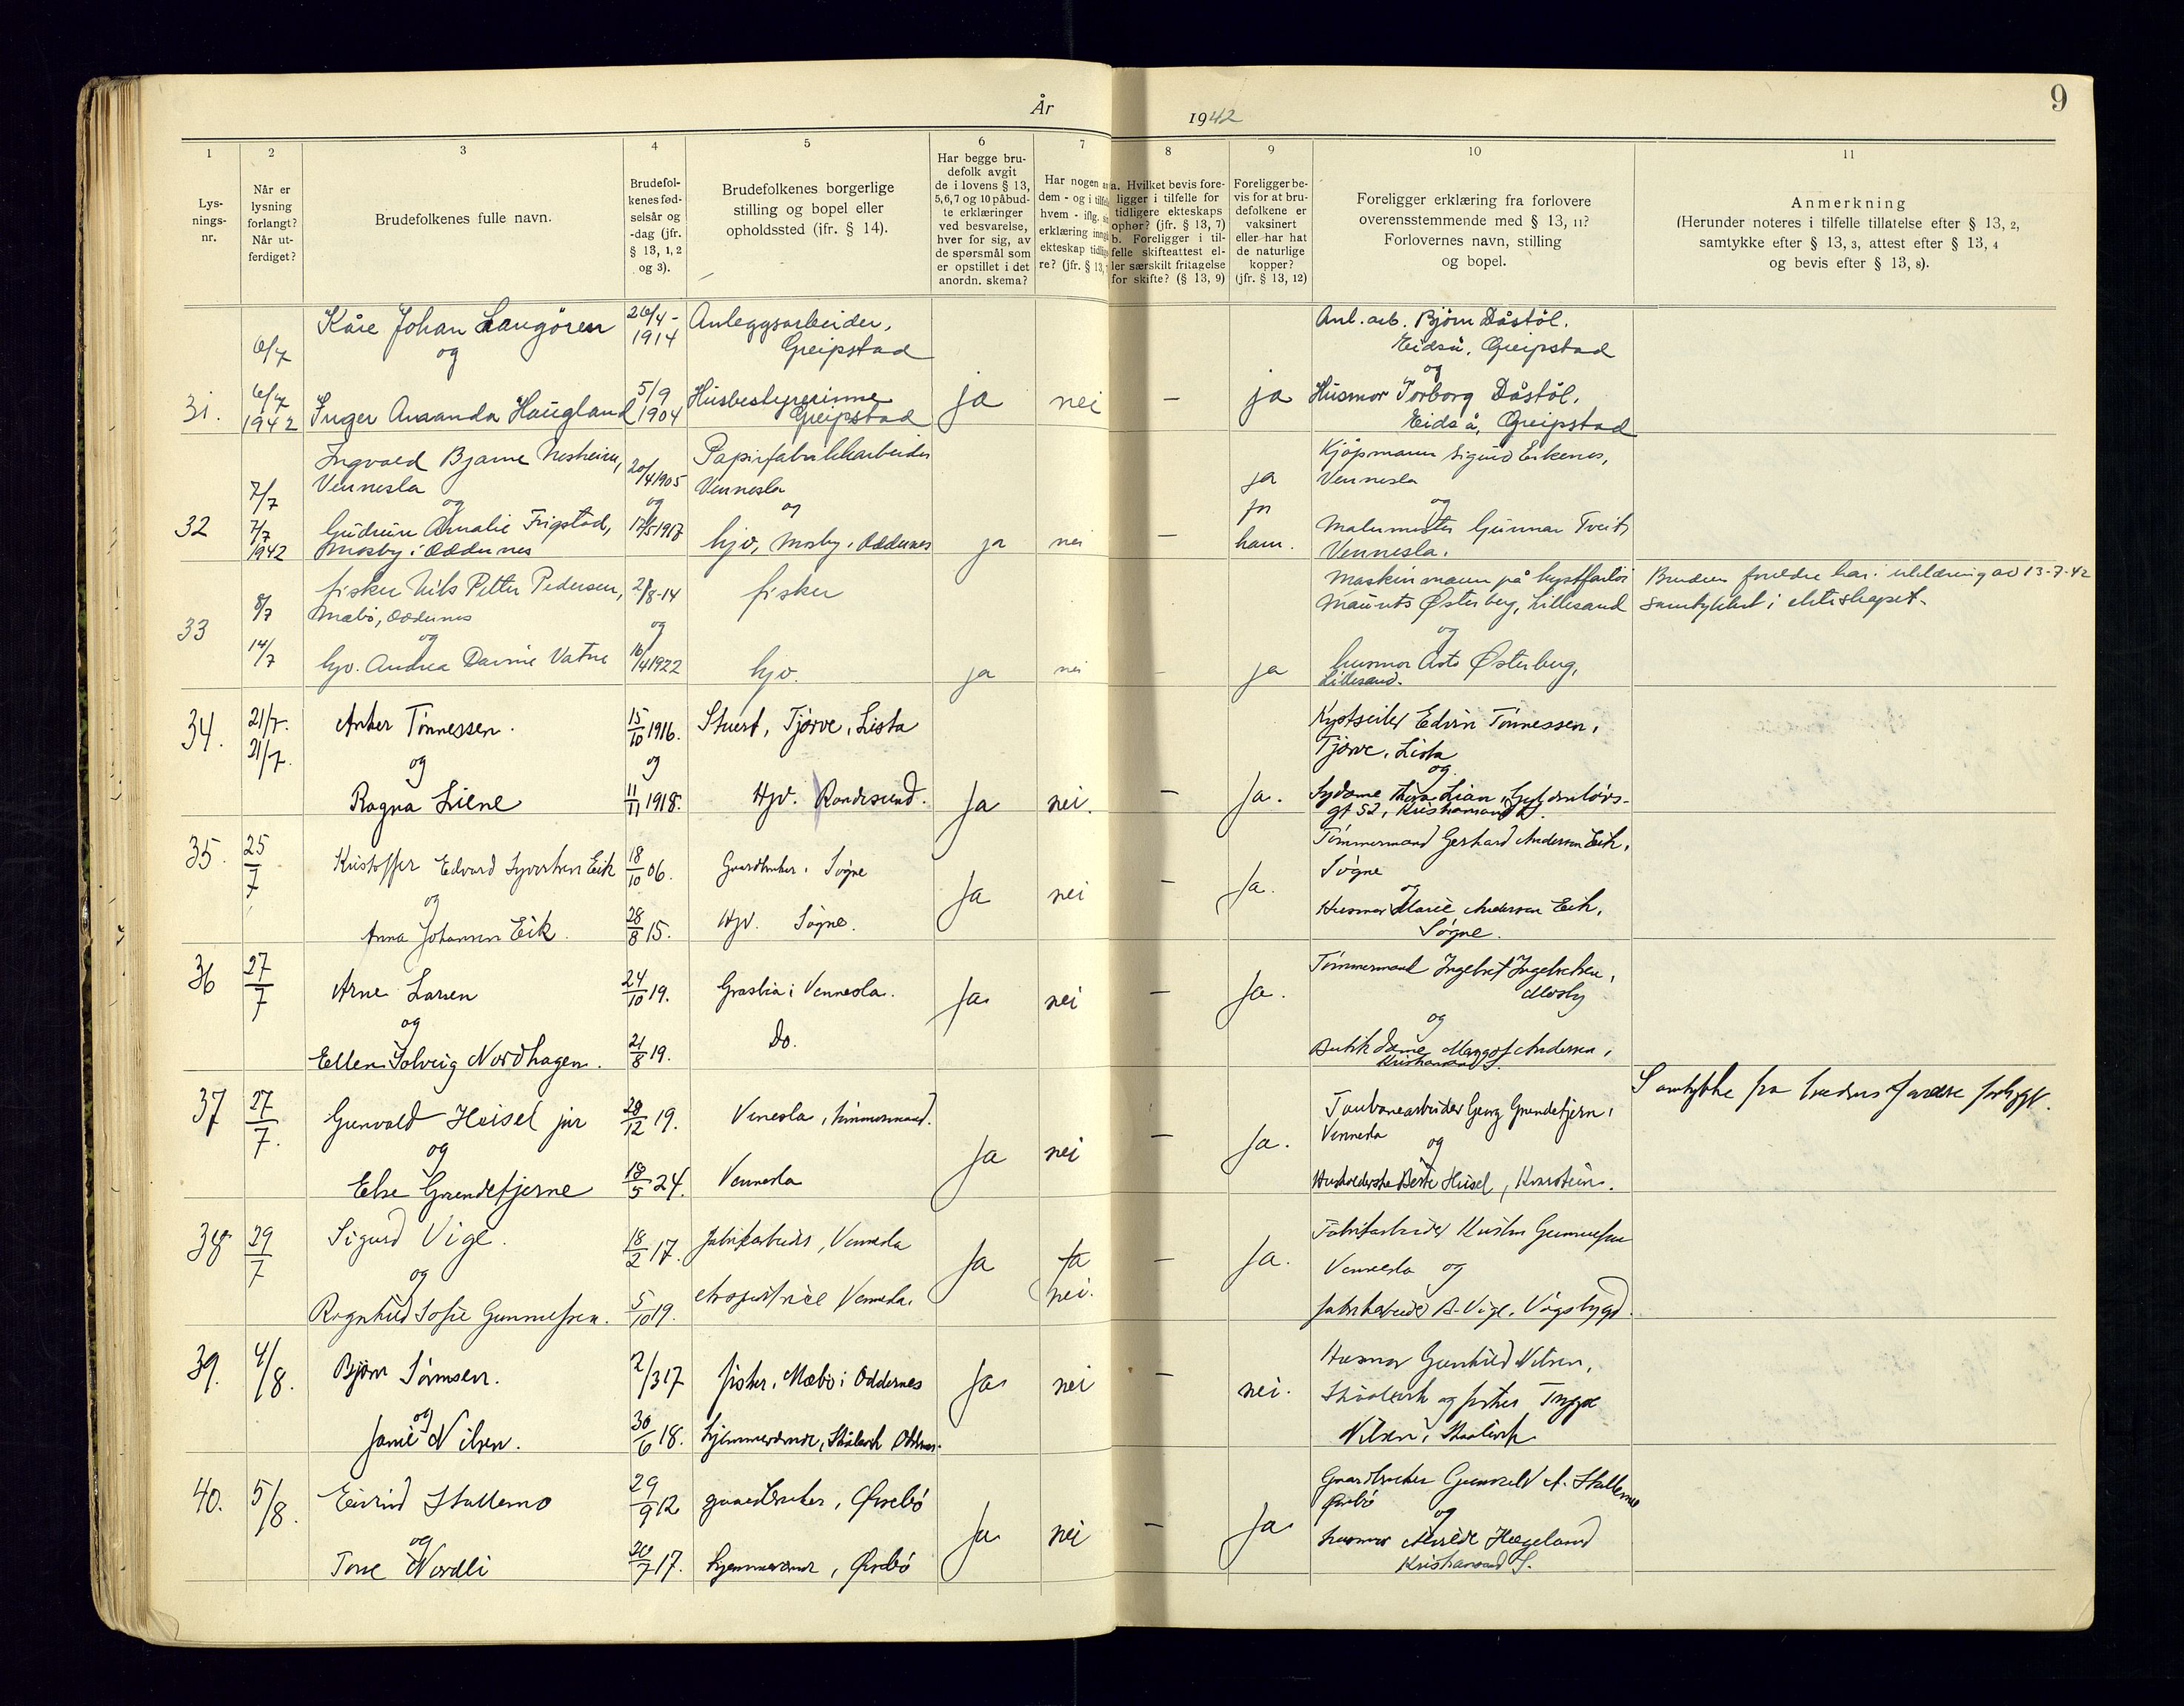 År 1942
9
1
2
3
4
5
6
7
8
9
10
11
Lys-
nings-
nr.
Når er
lysning
forlangt?
Når ut-
ferdiget?
Brudefolkenes fulle navn.
Brudefol-
kenes fød-
selsår og
-dag (jfr.
§ 13, 1, 2
og 3).
Brudefolkenes borgerlige
stilling og bopel eller
opholdssted (jfr. § 14).
Har begge bru-
defolk avgit
de i lovens § 13,
5, 6, 7 og 10 påbud-
te erklæringer
ved besvarelse,
hver for sig, av
de spørsmål som
er opstillet i det
anordn. skema?
Har nogen
dem - og i
hvem - iflg.
erklæring
ekteskap
re? (jfr. § 13,
a. Hvilket bevis fore-
ligger i tilfelle for
tidligere ekteskaps
ophør? (jfr. § 13, 7)
b. Foreligger i til-
felle skifteattest el-
ler særskilt fritagelse
for skifte? (§ 13, 9)
Foreligger be-
vis for at bru-
defolkene er
vaksinert
eller har hat
de naturlige
kopper?
(jfr. § 13, 12)
Foreligger erklæring fra forlovere
overensstemmende med § 13, 11?
Forlovernes navn, stilling
og bopel.
Anmerkning
(Herunder noteres i tilfelle tillatelse efter § 13, 2,
samtykke efter § 13, 3, attest efter § 13, 4
og bevis efter § 13, 8).
31.
6/7
6/7
1942
Kåre Johan Langören
og
Inger Amanda Haugland
26/4-
1914
5/9
1904
Anleggsarbeider,
Greipstad
Husbestyrerinne
Greipstad
ja
nei
—
ja
Anl. arb. Björn Dåstöl.
Eidså, Greipstad
og
Husmor Torborg Dåstöl.
Eidså, Greipstad
32
7/7
7/7
1942
Ingvald Bjarne Nesheim,
Vennesla
og
Gudrun Amalie Frigstad,
Mosby i Oddernes
20/4 1905
og
17/5 1918
Papirfabrikkarbeider
Vennesla
og
hjv, Mosby i Oddernes
ja
nei
—
ja
for
ham.
Kjøpmann Sigurd Eikenes,
Vennesla
og
Malermester Gunnar Tveit,
Vennesla.
33
8/7
14/7
fisker Nils Petter Pedersen,
Mæbø, Oddernes
og
hjv. Andrea Darine Vatne
2/8-14
og
16/4 1922
fisker
hjv.
ja
nei
—
ja
Maskinmann på kystfartöi
Mauritz Østerberg, Lillesand
og
husmor Østerberg,
Lillesand.
Brudens foreldre har i erklæring av 13-7-42
samtykket i ekteskapet.
34.
21/7.
21/7.
Anker Tönnessen.
og
Ragna Liene
15/10 1916.
og
11/11 1918.
Stuert, Tjørve, Lista
Hjv. Randesund.
Ja
nei.
—
Ja.
Kystseiler Edvin Tönnessen,
Tjørve, Lista
og
Sydame Thora Lian, Gyldenløvs-
gt 52, Kristiansand S.
35.
25/7
Kristoffer Edvard Syvertsen Eik
og
Anna Johansen Eik.
18/10 06.
28/8 15.
Gaardbruker. Søgne
Hjv. Søgne.
Ja
nei
—
Ja.
Tömmermand Gerhard Andersen Eik,
Søgne
og
Husmor Marie Andersen Eik,
Søgne.
36
27/7
Arne Larsen
og
Ellen Solveig Nordhagen.
24/10 19.
21/8 19.
i Vennesla.
Do.
Ja
nei
—
Ja.
Tömmermand Ingebret Ingebretsen,
Mosby
og
Butikdame Margot Andersen,
Kristiansand S.
37
27/7.
Gunvald Heisel jnr
og
Else Grundetjerne
28/12 19.
18/5 24.
Vennesla, tömmermand.
Vennesla
Ja
nei
—
Ja.
Taubanearbeider Georg Grundetjern,
Vennesla
og
Husholderske Berte Heisel,
Samtykke fra brudens forældre forligger.
38
29/7
Sigurd Vige.
og
Ragnhild Sofie Gunnufsen.
18/2 17.
5/10 19.
fabrikarbeider, Vennesla
Vennesla.
Ja
Ja
nei.
—
Ja.
Fabrikarbeider Gunnufsen
Vennesla og
fabrikarbeider A. Vige, Vågsbygd.
39.
4/8.
Bjørn Sörmsen.
og
Janie Nilsen.
2/3 17
30/6 18.
fisker, Mæbø i Oddernes
hjemmeværende, Skålevik Oddernes.
Ja
nei
—
nei.
Husmor Gunhild Nilsen,
Skålevik og fisker Trygve
Nilsen, Skålevik
40.
5/8.
Eivind Stallemo
og
Tone Nordli
29/9 12
20/7 17.
gaardbruker, Øvrebö
hjemmeværende, Øvrebö
Ja
nei
—
Ja
Gaardbruker Gunvald A. Stallemo
Øvrebö
og
husmor Hægeland
Kristiansand S.